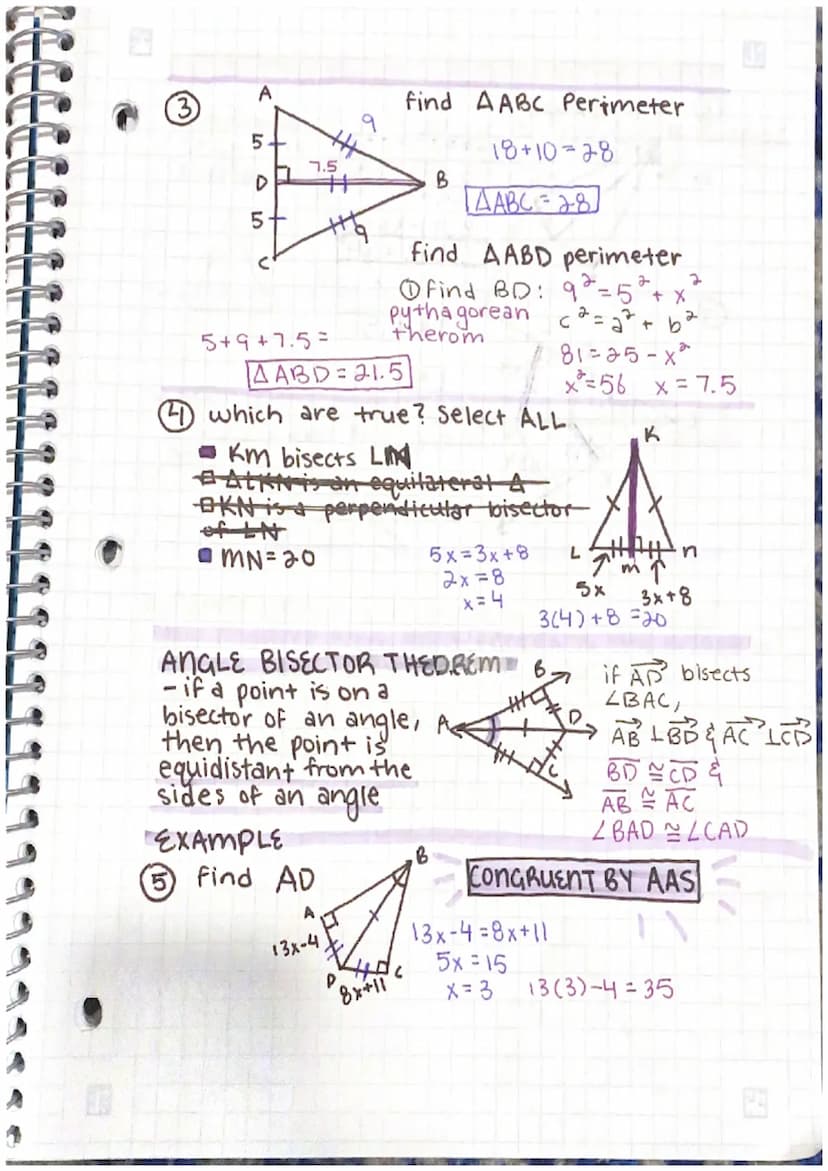 ③ find △ABC Perimeter
A
9
5
7.5
D
B
5
9
C
18+10=28
△ABC=28
find △ABD perimeter
① find BD: 9²=5²+x²
pythagorean c²=a²+b²
therom
81=25-x²
x²=56 x=7.5
5+9+7.5=
△ABD=21.5
④ which are true? Select ALL
Km bisects LN
△LKN is an equilateral △
KN is a perpendicular bisector
of LN
MN=20
5x=3x+8
2x=8
x=4
K
L
m
n
5x
3x+8
3(4)+8=20
ANGLE BISECTOR THEOREM
-if a point is on a
bisector of an angle,
then the point is
equidistant from the
sides of an angle
B
A
D
C
if AD bisects
∠BAC,
AB ⊥ BD & AC ⊥ CD
BD ≅ CD &
AB ≅ AC
∠BAD ≅ ∠CAD
EXAMPLE
⑤ find AD
B
A
13x-4
D
C
8x+11
CONGRUENT BY AAS
13x-4=8x+11
5x=15
x=3 13(3)-4=35